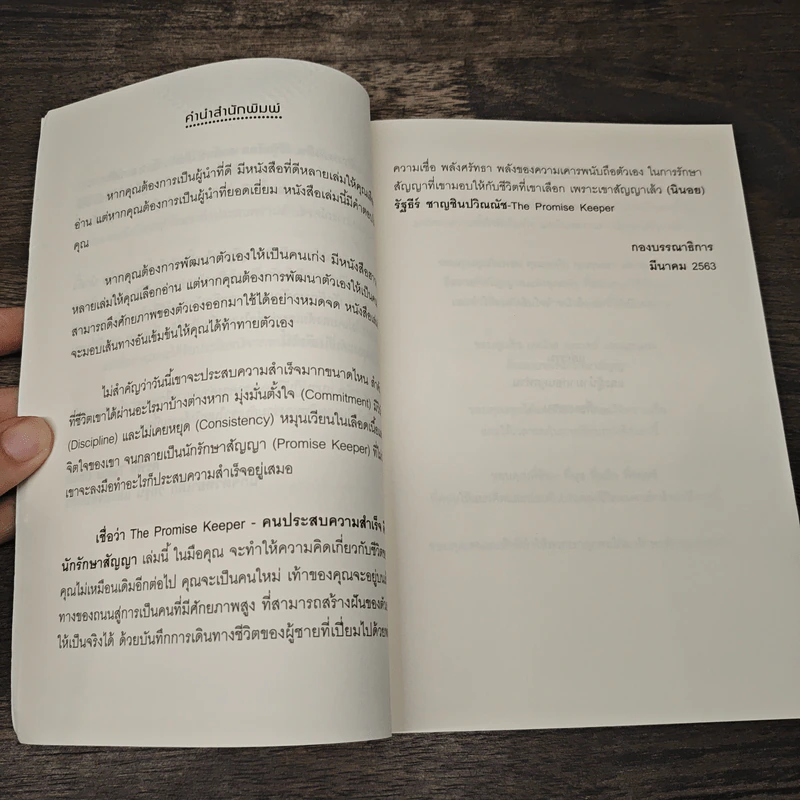 คำนำสำนักพิมพ์
หากคุณต้องการเป็นผู้นำที่ดี มีหนังสือที่ดีหลายเล่มให้คุณ
อ่าน แต่หากคุณต้องการเป็นผู้นำที่ยอดเยี่ยม หนังสือเล่มนี้มี
คุณ
หากคุณต้องการพัฒนาตัวเองให้เป็นคนเก่ง มีหนังสือ
หลายเล่มให้คุณเลือกอ่าน แต่หากคุณต้องการพัฒนาตัวเองให้เป็น
สามารถดึงศักยภาพของตัวเองออกมาใช้ได้อย่างหมดจด หนังสือ
จะมอบเส้นทางอันเข้มข้นให้คุณได้ท้าทายตัวเอง
ไม่สำคัญว่าวันนี้เขาจะประสบความสำเร็จมากขนาดไหน
ที่ชีวิตเขาได้ผ่านอะไรมาบ้างต่างหาก มุ่งมั่นตั้งใจ (Commitment)
(Discipline) และไม่เคยหยุด (Consistency) หมุนเวียนในเลือดเนื้อ
จิตใจของเขา จนกลายเป็นนักรักษาสัญญา (Promise Keeper)
เขาจะลงมือทำอะไรก็ประสบความสำเร็จอยู่เสมอ
เชื่อว่า The Promise Keeper - คนประสบความสำเร็จ
นักรักษาสัญญา เล่มนี้ ในมือคุณ จะทำให้ความคิดเกี่ยวกับชีวิต
คุณไม่เหมือนเดิมอีกต่อไป คุณจะเป็นคนใหม่ เท้าของคุณจะอยู่บน
ทางของถนนสู่การเป็นคนที่มีศักยภาพสูง ที่สามารถสร้างฝันของ
ให้เป็นจริงได้ ด้วยบันทึกการเดินทางชีวิตของผู้ชายที่เปี่ยมไปด้วย
ความเชื่อ พลังศรัทธา พลังของความเคารพนับถือตัวเอง ในการรักษา
สัญญาที่เขามอบให้กับชีวิตที่เขาเลือก เพราะเขาสัญญาแล้ว (นินอย)
รัฐธีร์ ชาญชินปวิณณัช-The Promise Keeper
กองบรรณาธิการ
มีนาคม 2563